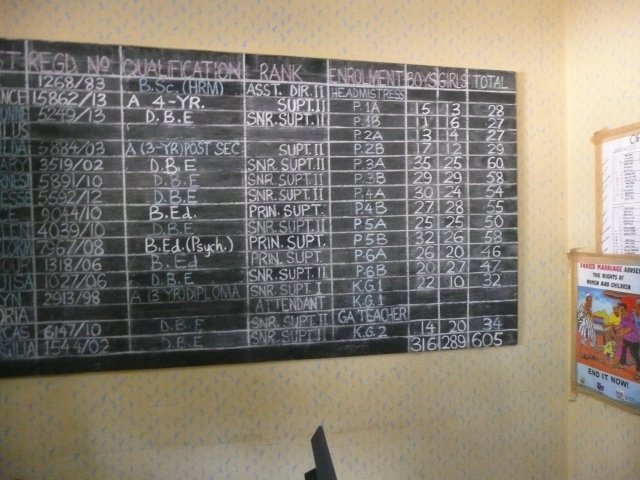 ST REGD. NO QUALIFICATION RANK ENROLMENT BOYS GIRLS TOTAL
1268/83 B.Sc. (HRM) ASST. DIR. II HEADMISTRESS
NCE 15862/13 A 4-YR. SUPT. II P.1A 15 13 28
5249/13 D.B.E SNR. SUPT. II P.1B 11 16 27
LIUS P.2A 13 14 27
5884/03 A (3-YR) POST SEC SUPT. II P.2B 17 12 29
ARY 3519/02 D.B.E SNR. SUPT. II P.3A 35 25 60
5891/10 D.B.E SNR. SUPT. II P.3B 29 29 58
5592/12 D.B.E SNR. SUPT. II P.4A 30 24 54
CE 9044/10 B.Ed. PRIN. SUPT. P.4B 27 28 55
4039/10 D.B.E SNR. SUPT. II P.5A 25 25 50
7967/08 B.Ed. (Psych.) PRIN. SUPT. P.5B 32 26 58
1318/06 B.Ed PRIN. SUPT. P.6A 26 20 46
D.B.E SNR. SUPT. II P.6B 20 27 47
2913/98 A (3 YR) DIPLOMA SNR. SUPT. I K.G.1 22 10 32
ORIA ATTENDANT K.G.1
6147/10 D.B.E SNR. SUPT. II GA TEACHER
1544/02 D.B.E SNR. SUPT. II K.G.2 14 20 34
316 289 605
FORCED MARRIAGE ABUSES
THE RIGHTS OF
WOMEN AND CHILDREN
END IT NOW!